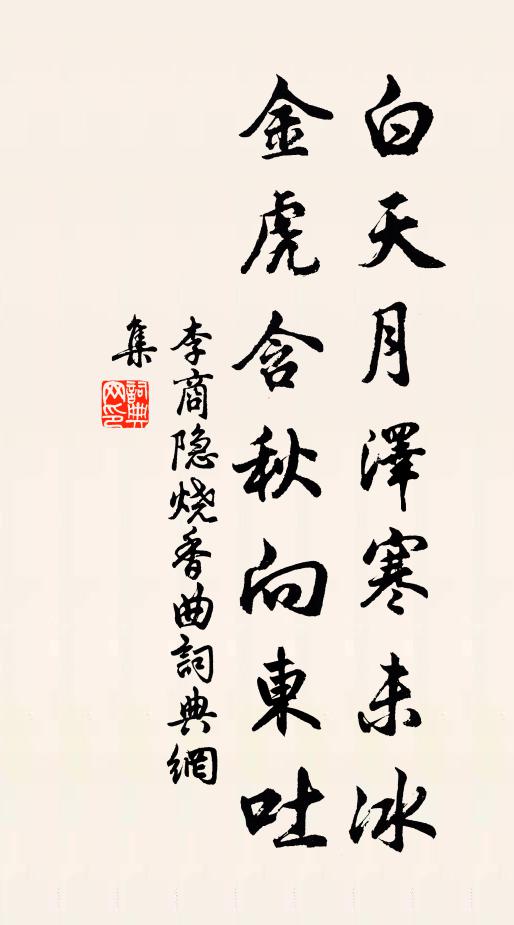 白天月澤寒未冰
金虎含秋向東吐
李商隐烧香曲詞典網
集
詞典
网印